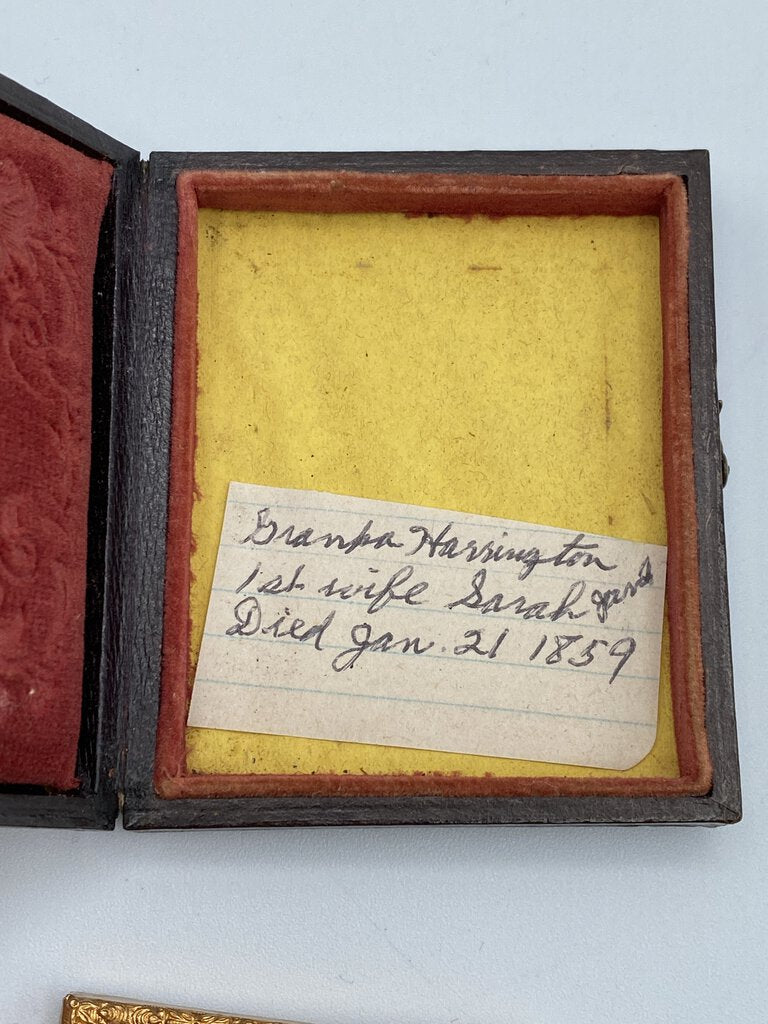 Granpa Harrington
1st wife Sarah
Died Jan. 21 1859